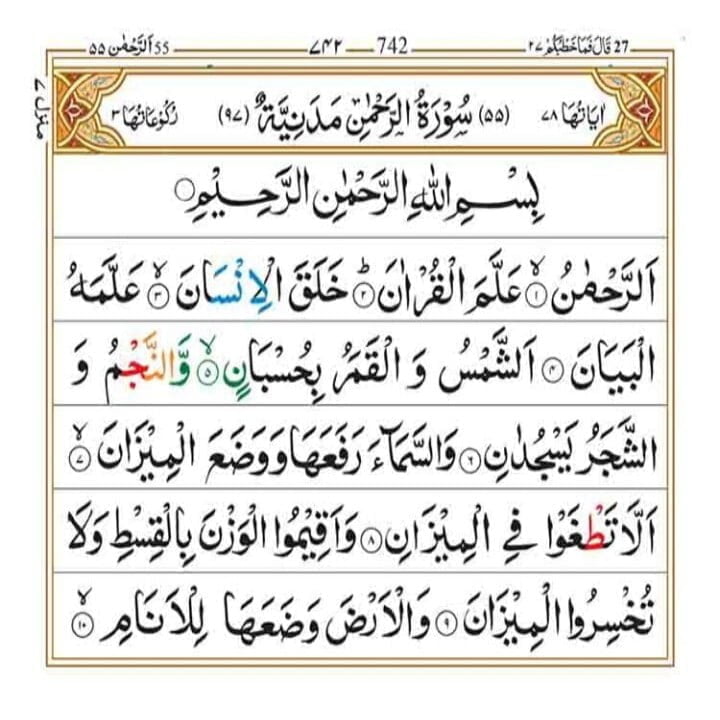 27 قَالَ فَمَا خَطْبُكُمْ ٢٧ 742 ٧٤٢ 55 اَلرَّحْمٰن ٥٥
منزل ٧
اٰيَاتُهَا ٧٨ (٥٥) سُوْرَةُ الرَّحْمٰنِ مَدَنِيَّةٌ (٩٧) رُكُوْعَاتُهَا ٣
بِسْمِ اللّٰهِ الرَّحْمٰنِ الرَّحِيْمِ
اَلرَّحْمٰنُ ۙ‏﴿١﴾ عَلَّمَ الْقُرْاٰنَ ؕ‏﴿٢﴾ خَلَقَ الْاِنْسَانَ ۙ‏﴿٣﴾ عَلَّمَهُ
الْبَيَانَ ﴿٤﴾ اَلشَّمْسُ وَ الْقَمَرُ بِحُسْبَانٍ ۙ‏﴿٥﴾ وَّالنَّجْمُ وَ
الشَّجَرُ يَسْجُدٰنِ ﴿٦﴾ وَالسَّمَآءَ رَفَعَهَا وَوَضَعَ الْمِيْزَانَ ۙ‏﴿٧﴾
اَلَّا تَطْغَوْا فِي الْمِيْزَانِ ﴿٨﴾ وَاَقِيْمُوا الْوَزْنَ بِالْقِسْطِ وَلَا
تُخْسِرُوا الْمِيْزَانَ ﴿٩﴾ وَالْاَرْضَ وَضَعَهَا لِلْاَنَامِ ۙ‏﴿١٠﴾